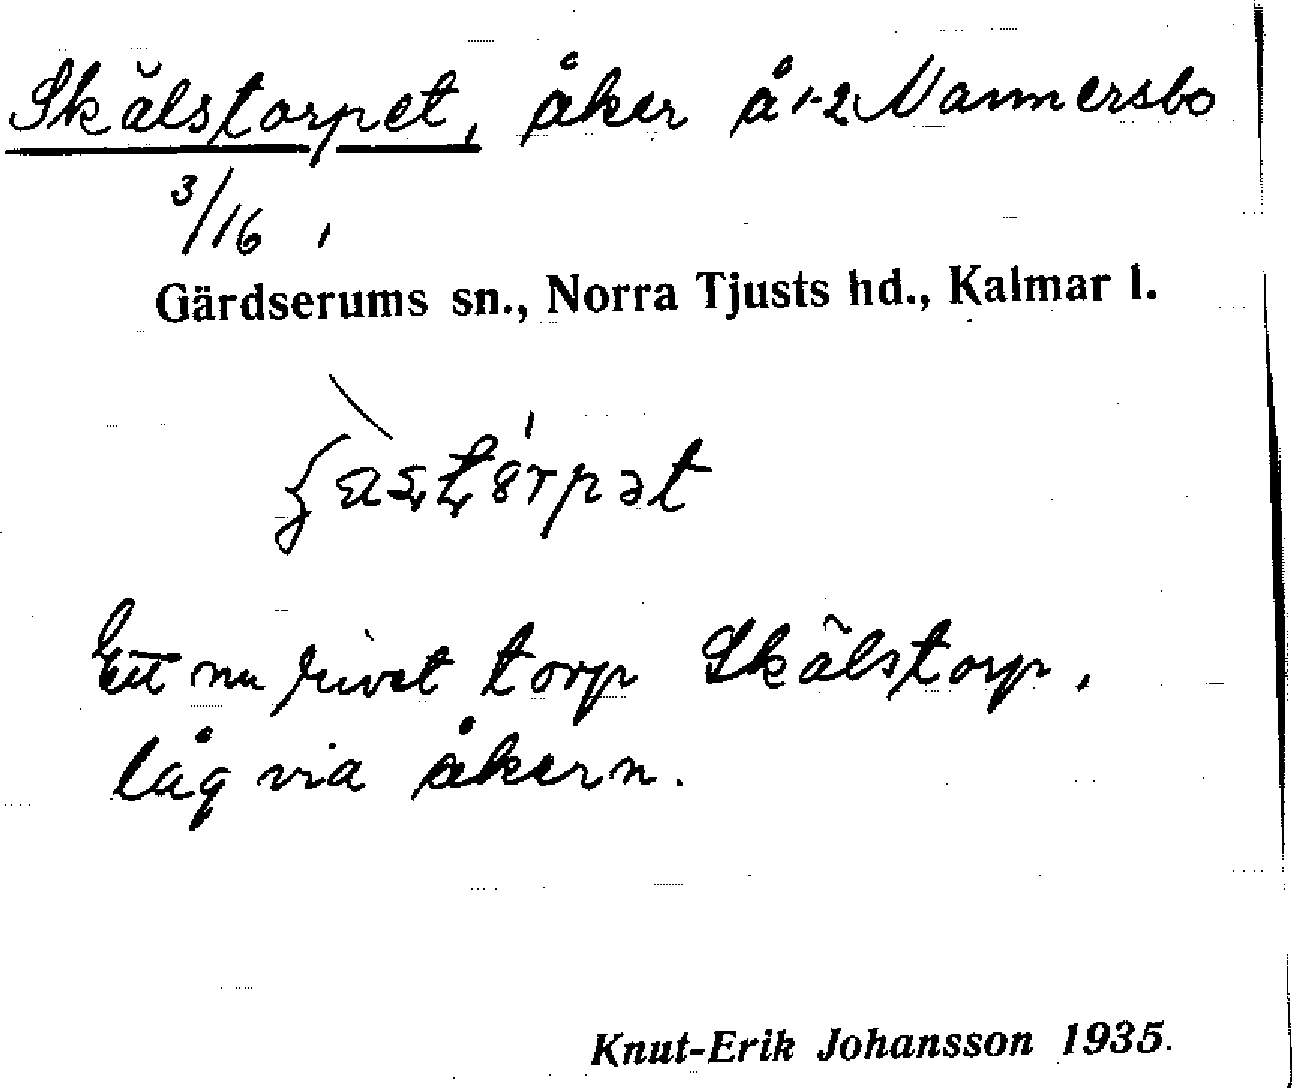 Skälstorpet, åker å 1-2 Nammersbo
3/16,
Gärdserums sn., Norra Tjusts hd., Kalmar l.
Ett nu rivet torp Skälstorp,
låg via åkern.
Knut-Erik Johansson 1935.